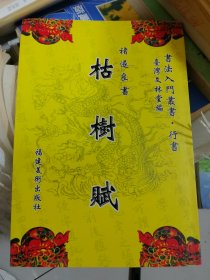 書法入門叢書·行書
臺灣文林堂編
褚遂良書
枯樹賦
福建美術出版社